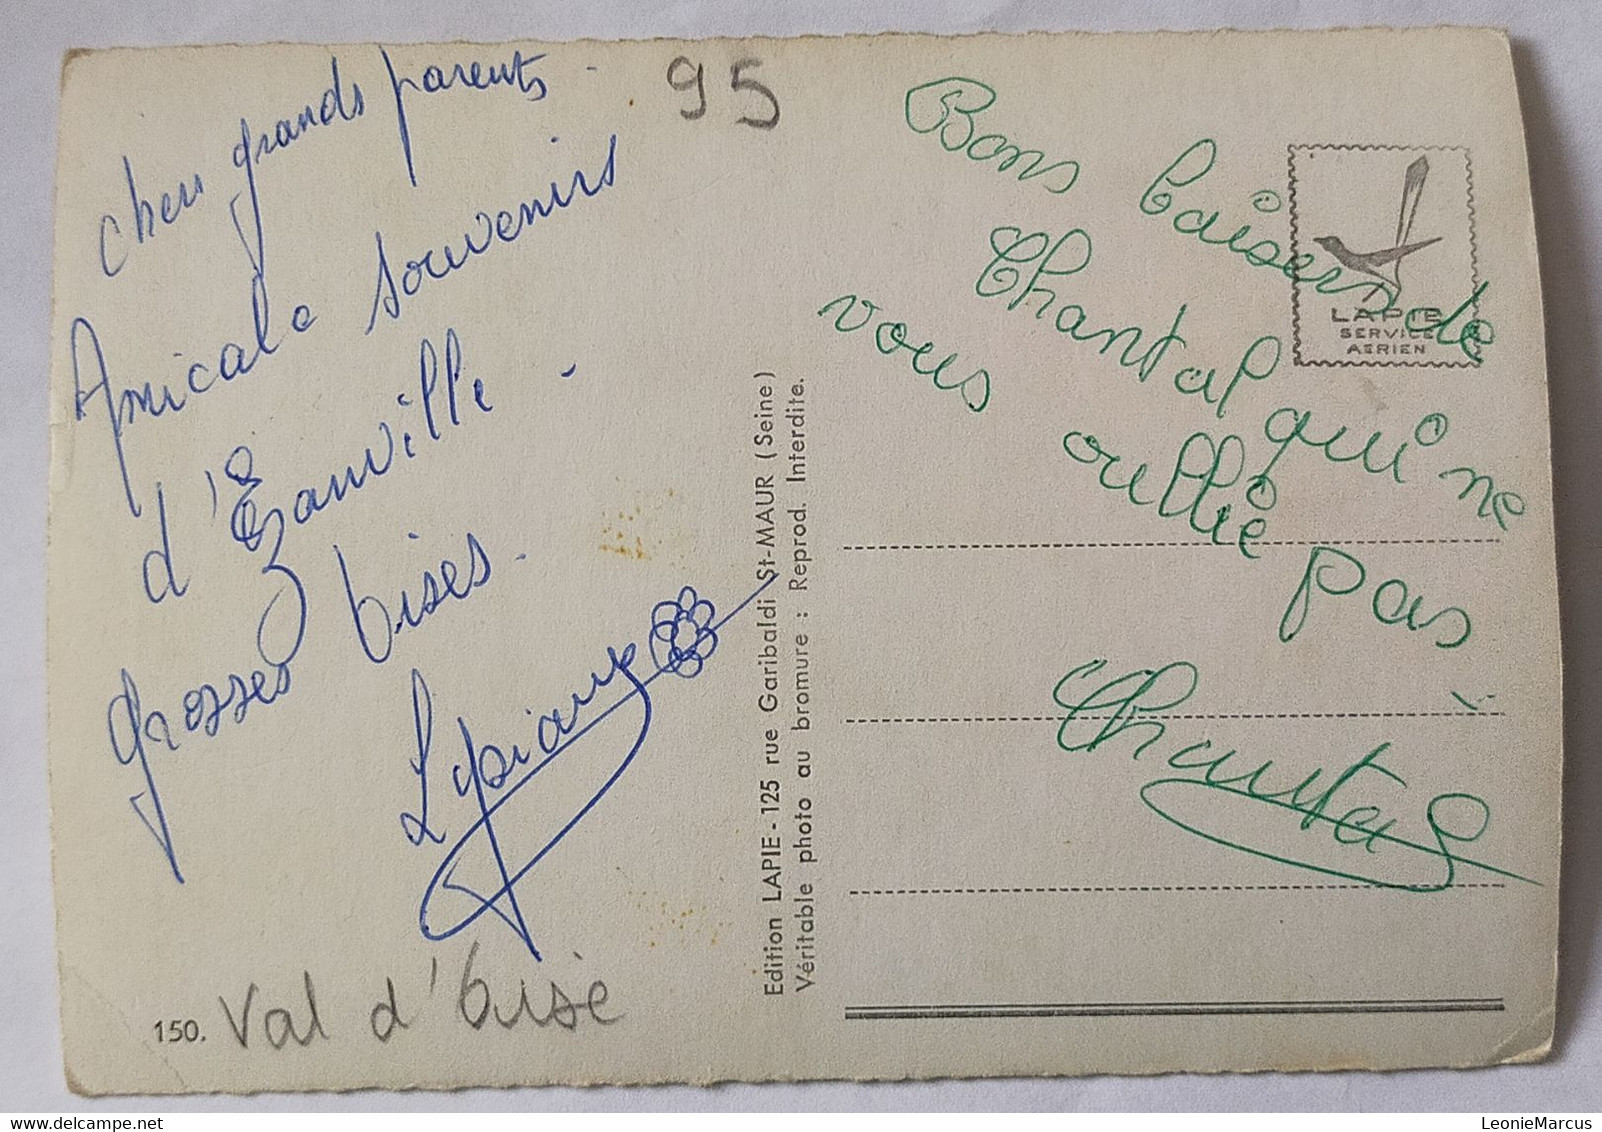 cher grands parents
Amicale souvenirs
d'Ezanville
grosses bises.
95
Bons baisers de
Chantal qui ne
vous oublie pas
Chantal
LAPIE
SERVICE
AERIEN
Edition LAPIE - 125 rue Garibaldi St-MAUR (Seine)
Véritable photo au bromure : Reprod. Interdite.
150.
Val d'Oise
LeonieMarcus